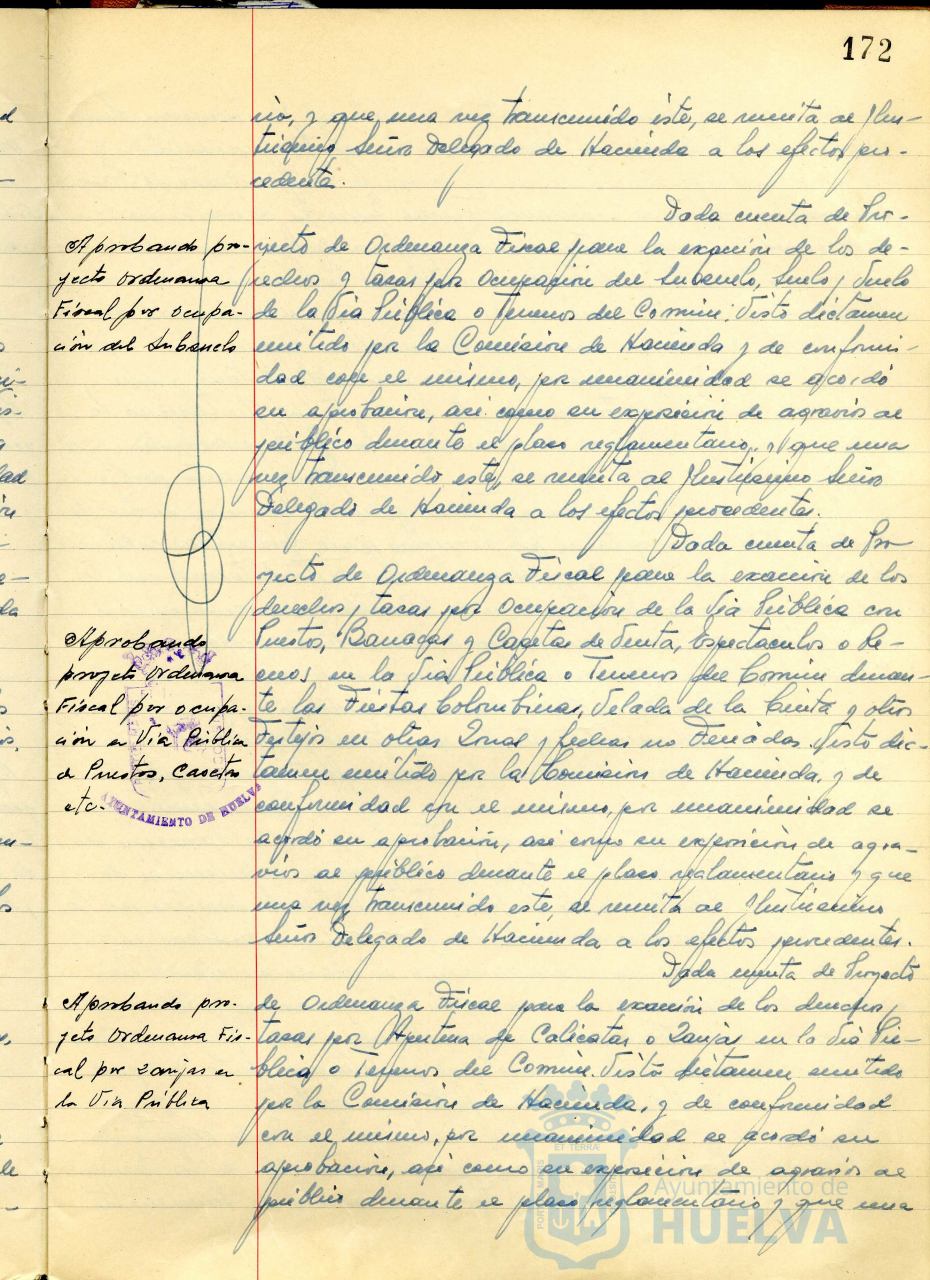 172
rio, y que una vez transcurrido éste, se remita al Ilus-
trísimo Señor Delegado de Hacienda a los efectos pro-
cedentes.
Dada cuenta de Pro-
Aprobando pro-
yecto ordenanza
Fiscal por ocupa-
ción del Subsuelo
yecto de Ordenanza Fiscal para la exacción de los de-
rechos y tasas por Ocupación del Subsuelo, Suelo y Vuelo
de la Vía Pública o Terrenos del Común. Visto dictamen
emitido por la Comisión de Hacienda y de conformi-
dad con el mismo, por unanimidad se acordó
su aprobación, así como su exposición de agravios al
público durante el plazo reglamentario, y que una
vez transcurrido este, se remita al Ilustrísimo Señor
Delegado de Hacienda a los efectos procedentes.
Dada cuenta de Pro-
yecto de Ordenanza Fiscal para la exacción de los
derechos y tasas por Ocupación de la Vía Pública con
Aprobando
proyecto Ordenanza
Fiscal por ocupa-
ción en Vía Pública
de Puestos, Casetas
etc.
Puestos, Barracas y Casetas de Venta, Espectáculos o Re-
creos, en la Vía Pública o Terrenos del Común duran-
te las Fiestas Colombinas, Velada de la Cinta y otros
Festejos en otras Zonas y fechas no Feriadas. Visto dic-
tamen emitido por la Comisión de Hacienda, y de
conformidad con el mismo, por unanimidad se
acordó su aprobación, así como su exposición de agra-
vios al público durante el plazo reglamentario y que
una vez transcurrido este, se remita al Ilustrísimo
Señor Delegado de Hacienda a los efectos procedentes.
AYUNTAMIENTO DE HUELVA
Dada cuenta de Proyecto
Aprobando pro-
yecto Ordenanza Fis-
cal por zanjas en
la Vía Pública
de Ordenanza Fiscal para la exacción de los derechos y
tasas por Apertura de Calicatas o Zanjas en la Vía Pú-
blica o Terrenos del Común. Visto dictamen emitido
por la Comisión de Hacienda, y de conformidad
con el mismo, por unanimidad se acordó su
aprobación, así como su exposición de agravios al
público durante el plazo reglamentario y que una
Ayuntamiento de
HUELVA